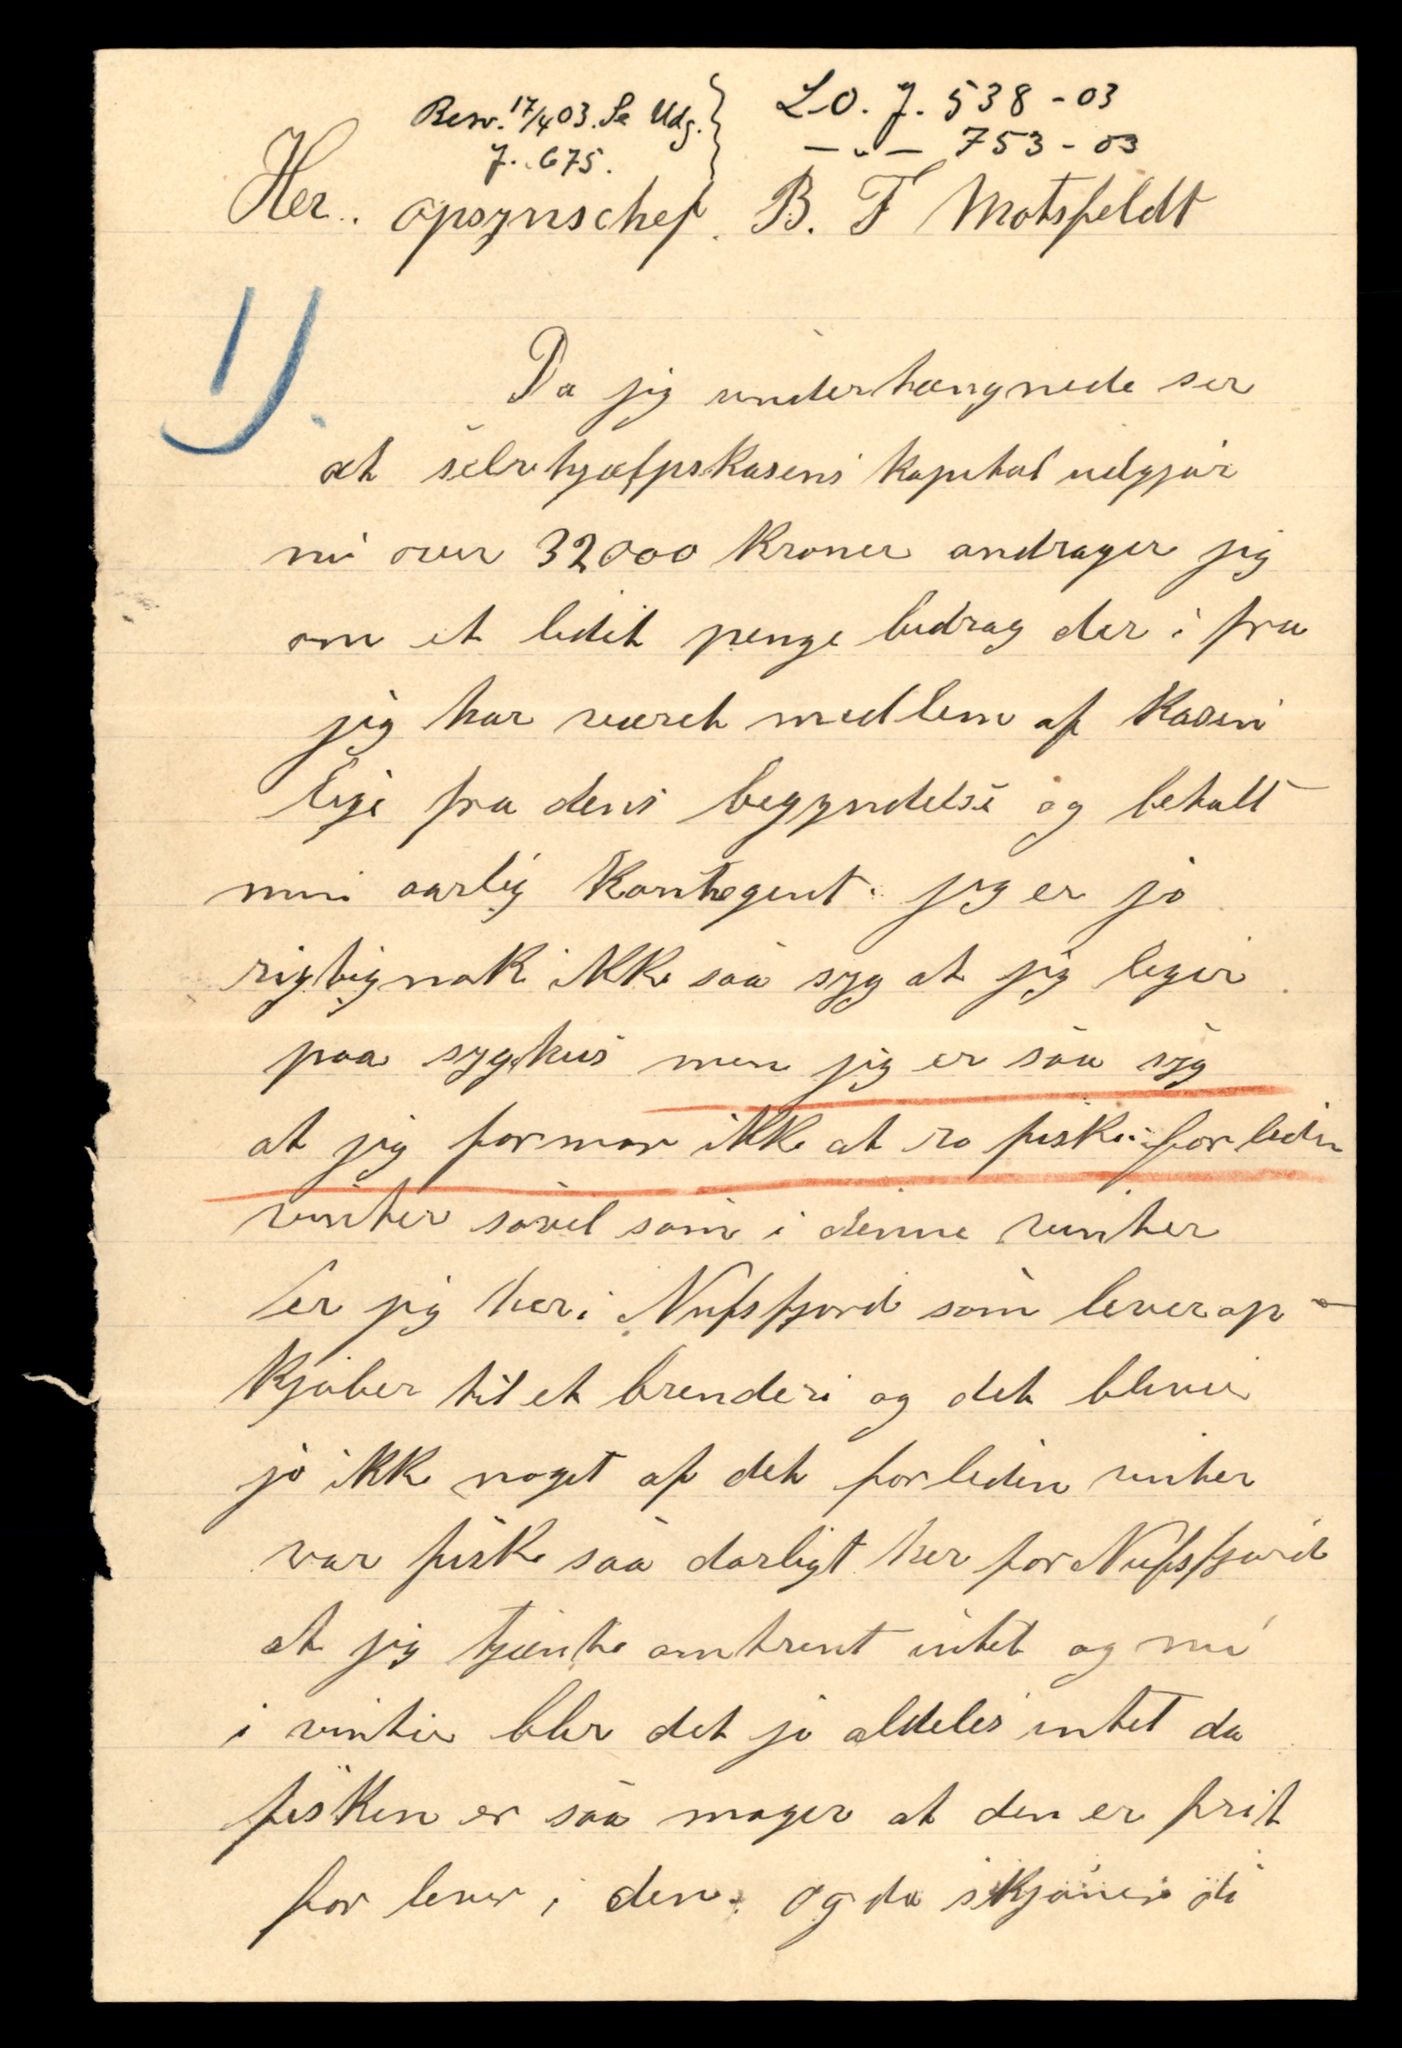 Besv. 17/4 03. Se Udg.
J. 675.
L.O. J. 538-03
—〃— 753-03
Her. opsynschef. B. F Motsfeldt
1).
Da jig underhængnede ser
at selvhjælpskasens kapital udgjør
nu over 32000 Kroner andrager jig
om et lidit penge bidrag der i fra
jig har været medlem af Kasen
lige fra dens begyndelse og betalt
min aarlig Kontegent. jeg er jo
rigtignok ikke saa syg at jig liger
paa sygehus men jig er saa syg
at jig formar ikke at ro fiske. forleden
vinter savel som i denne vinter
er jig her i Nufsfjord som leverop-
kjøber til et brenderi og det bliver
jo ikke noget af det forleden vinter
var fiske saa darligt her for Nufsfjord
at jig tjente omtrent intet og nu
i vinter blir det jo aldeles intet da
fisken er saa mager at den er frit
for lever i den. og da skjøner di